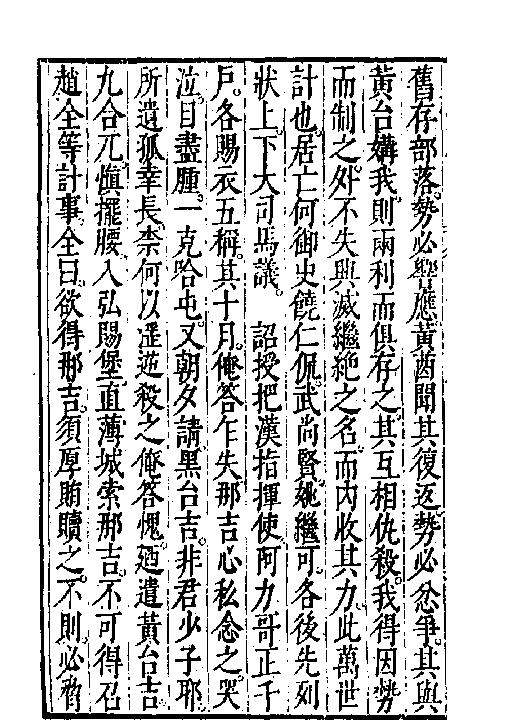 舊存部落。勢必響應黃酋聞其復返勢必忿爭。其與
黃台媾我。則兩利而俱存之。其互相仇殺。我得因勢
而制之。外不失興滅繼絶之名。而内收其力。此萬世
計也。居亡何御史饒仁侃。武尚賢姚繼可。各後先列
狀上。下大司馬議。　詔授把漢指揮使。阿力哥正千
戶。各賜衣五稱。其十月。俺答乍失那吉心私念之。哭
泣目盡腫。一克哈屯。又朝夕請黑台吉。非君少子耶。
所遺孤幸長。柰何以逞遊殺之俺答愧。廼遣黃台吉。
九合兀愼擺腰。入弘賜堡。直薄城索那吉。不可得召
趙全等計事。全曰。欲得那吉。須厚賄贖之。不則。必有